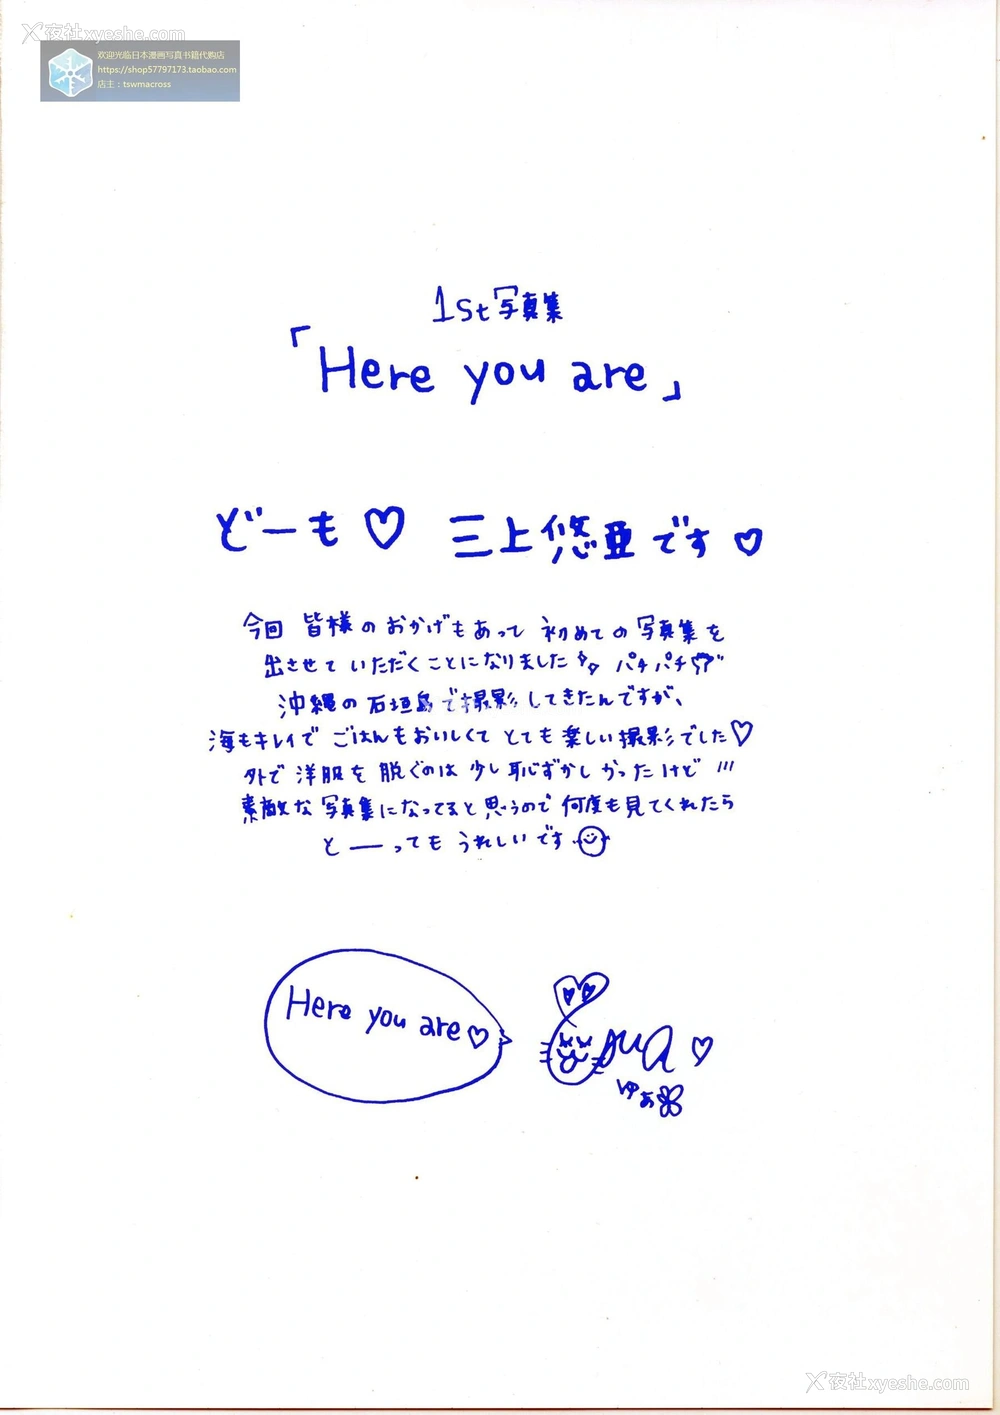 X夜社xyeshe.com
欢迎光临日本漫画写真书籍代购店
https://shop57797173.taobao.com
店主：tswmacross
1st写真集
「Here you are」
どーも♡ 三上悠亜です♡
今回 皆様のおかげもあって 初めての写真集を
出させていただくことになりました パチパチ
沖縄の石垣島で撮影してきたんですが、
海もキレイで ごはんもおいしくて とても楽しい撮影でした♡
外で洋服を脱ぐのは少し恥ずかしかったけど !!!
素敵な写真集になってると思うので何度も見てくれたら
と――ってもうれしいです
Here you are♡
yua♡
ゆあ
X夜社xyeshe.com